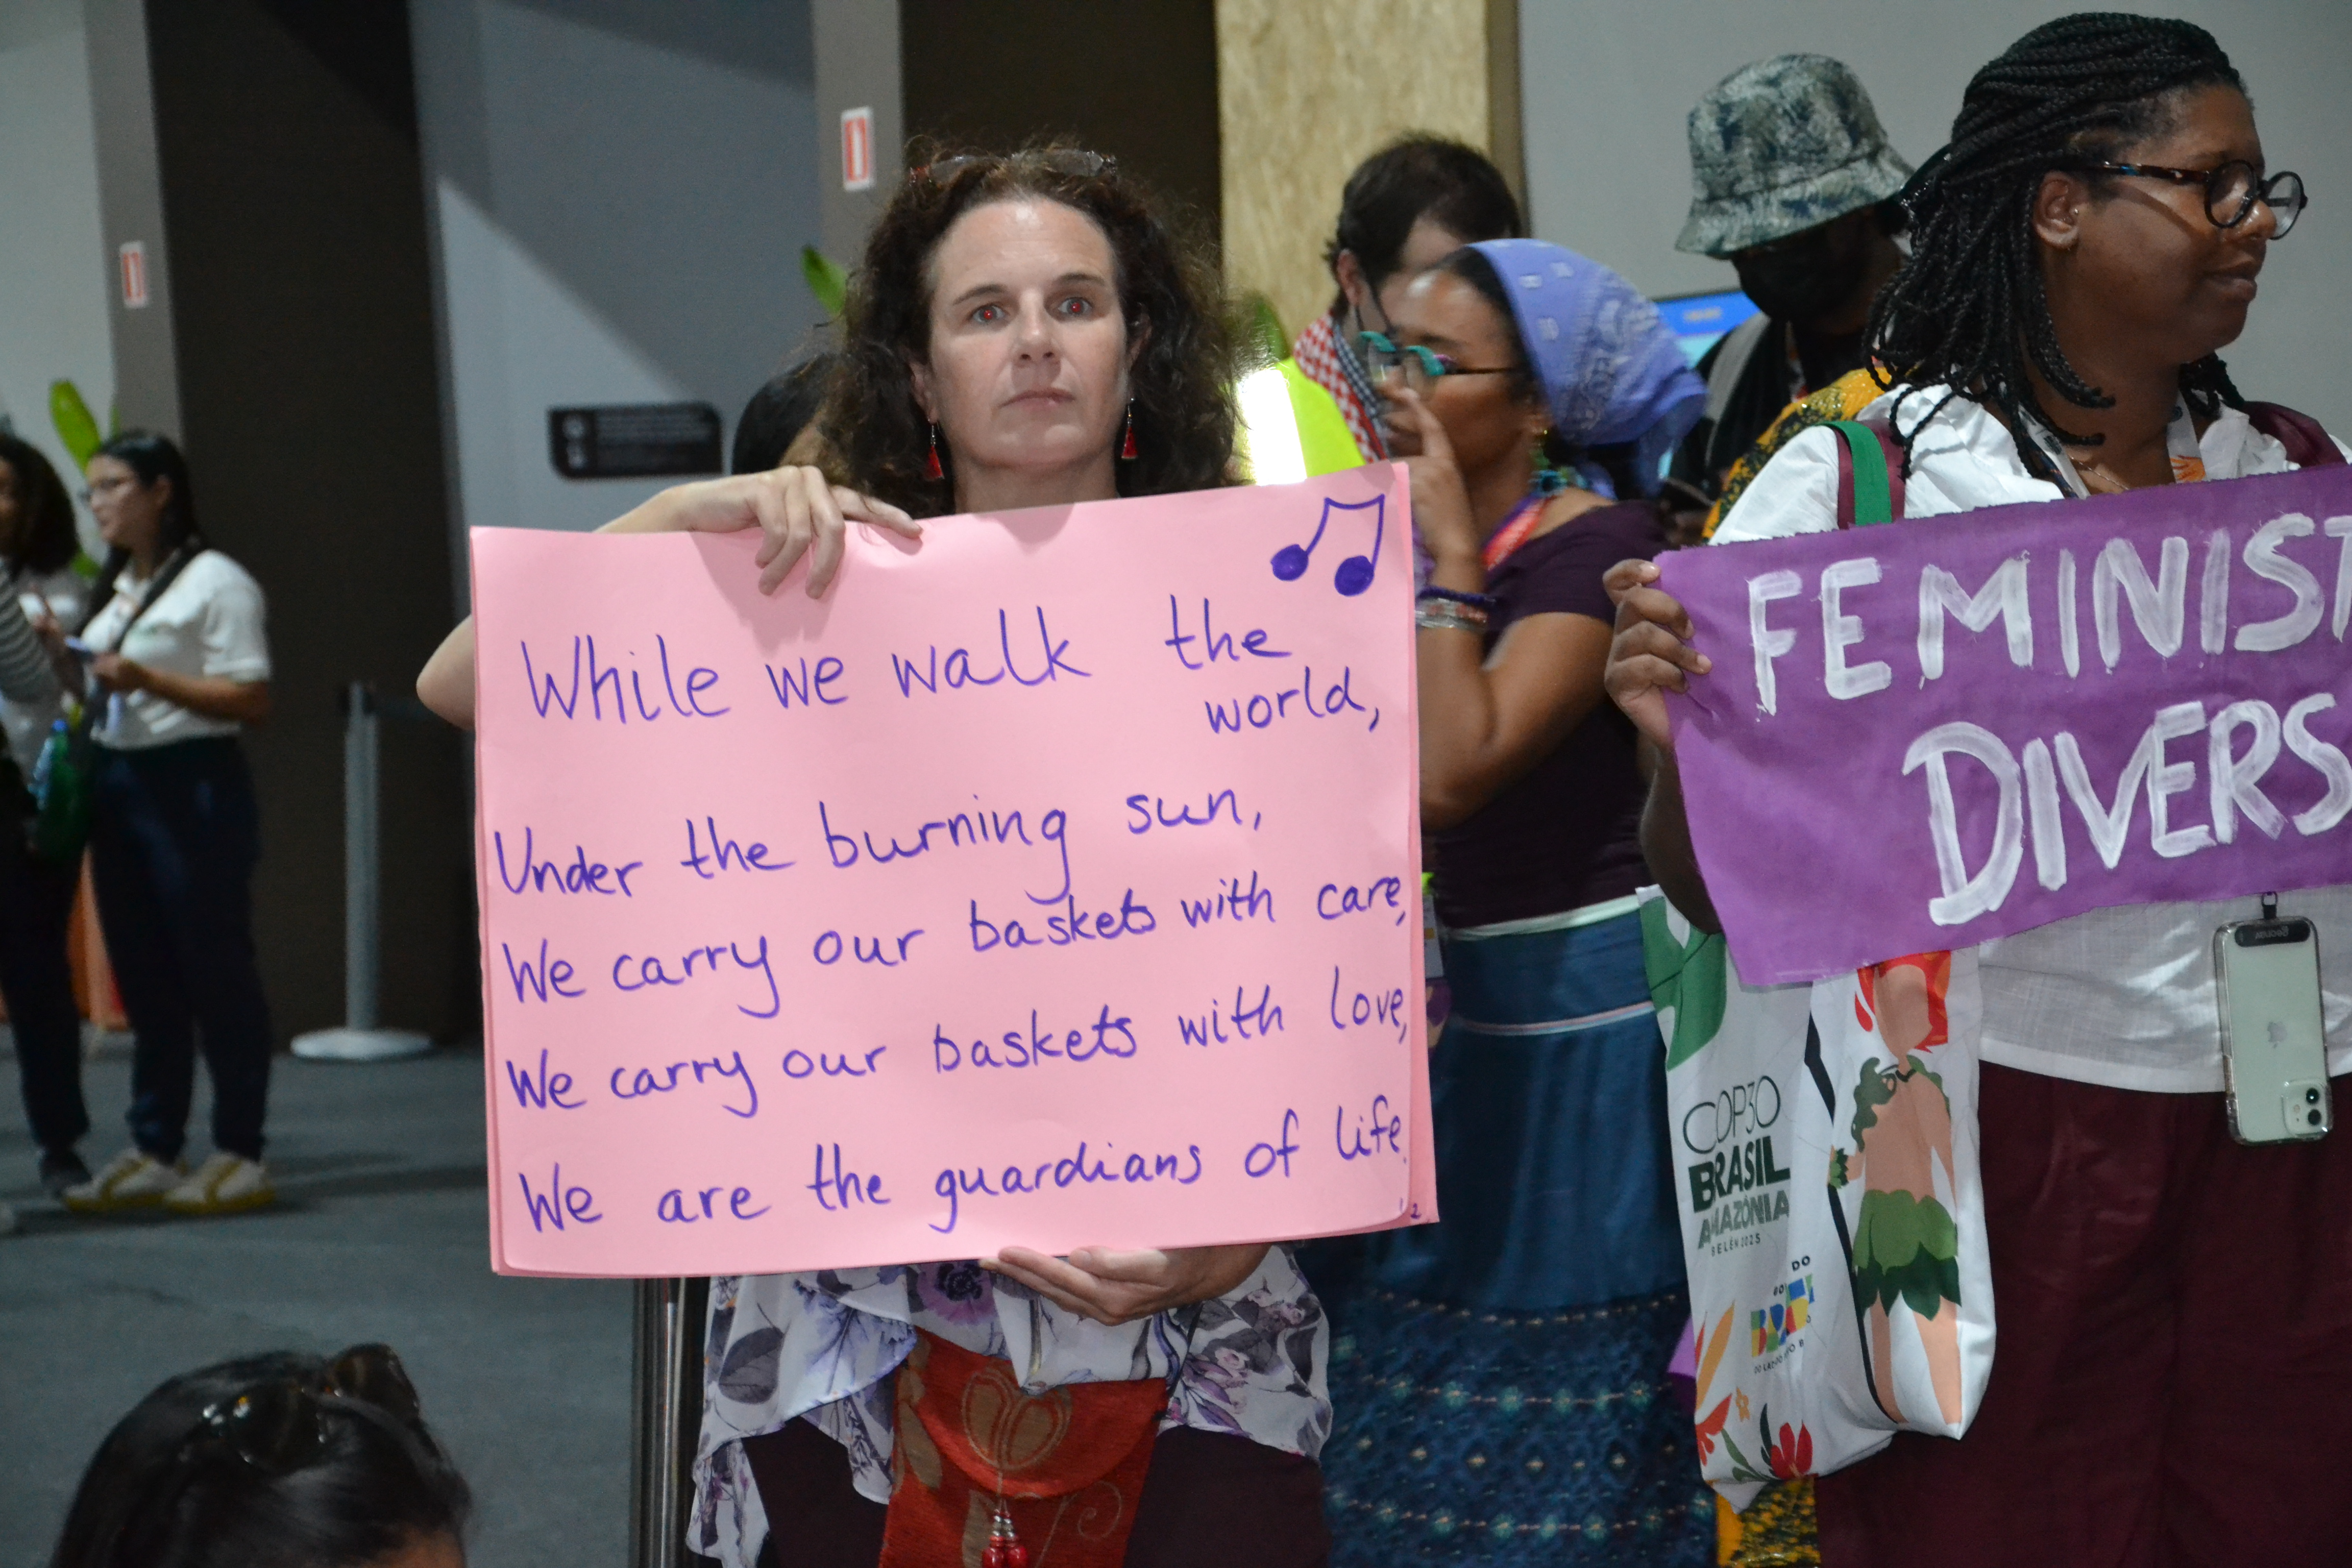 While we walk the
world,
Under the burning sun,
We carry our baskets with care,
We carry our baskets with love,
We are the guardians of life.
2
FEMINIST
DIVERS
COP30
BRASIL
AMAZÔNIA
BELÉM 2025
DO